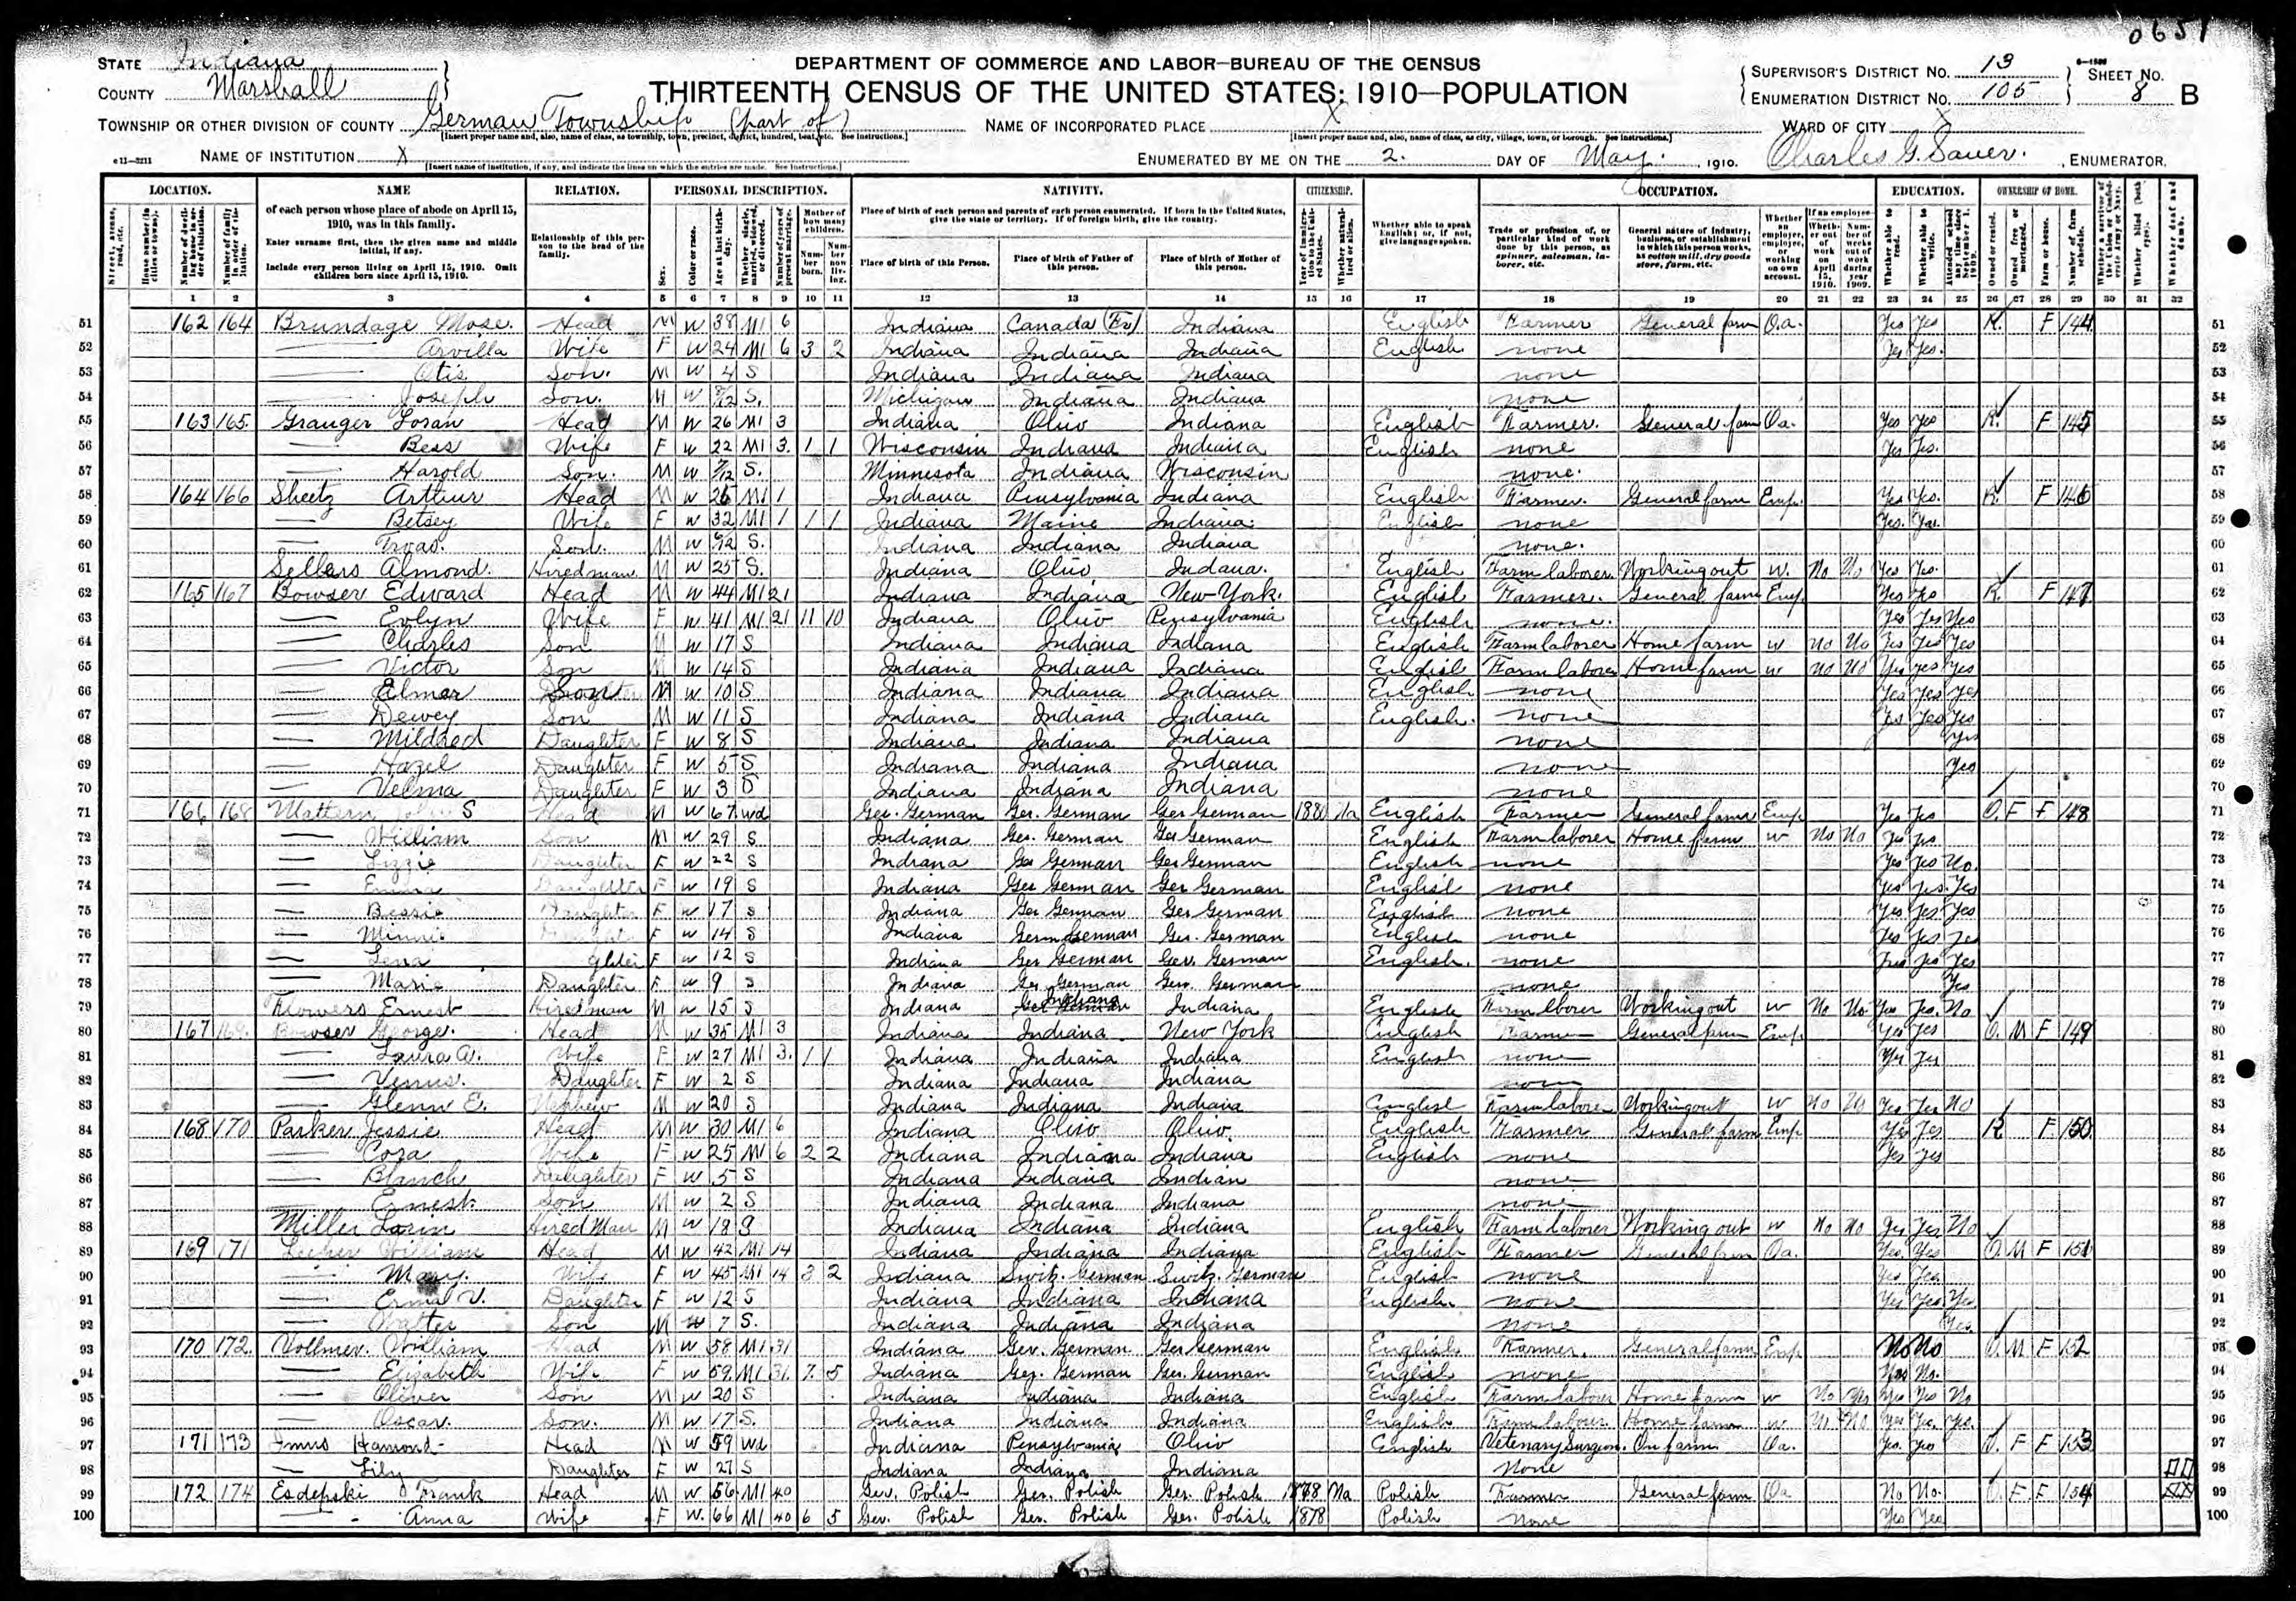 0651
STATE Indiana
COUNTY Marshall
DEPARTMENT OF COMMERCE AND LABOR—BUREAU OF THE CENSUS
THIRTEENTH CENSUS OF THE UNITED STATES: 1910—POPULATION
SUPERVISOR'S DISTRICT No. 13
ENUMERATION DISTRICT No. 105
SHEET No. 8 B
TOWNSHIP OR OTHER DIVISION OF COUNTY German Township (part of)
NAME OF INCORPORATED PLACE X
WARD OF CITY X
NAME OF INSTITUTION X
ENUMERATED BY ME ON THE 2. DAY OF May. , 1910. Charles G. Sauer. , ENUMERATOR.
LOCATION. NAME RELATION. PERSONAL DESCRIPTION. NATIVITY. CITIZENSHIP. OCCUPATION. EDUCATION. OWNERSHIP OF HOME.
of each person whose place of abode on April 15, 1910, was in this family.
Enter surname first, then the given name and middle initial, if any.
Include every person living on April 15, 1910. Omit children born since April 15, 1910.
Relationship of this person to the head of the family.
Place of birth of each person and parents of each person enumerated. If born in the United States, give the state or territory. If of foreign birth, give the country.
Place of birth of this Person. Place of birth of Father of this person. Place of birth of Mother of this person.
Whether able to speak English; or, if not, give language spoken.
1 2 3 4 5 6 7 8 9 10 11 12 13 14 15 16 17 18 19 20 21 22 23 24 25 26 27 28 29 30 31 32
51 162 164 Brundage Mose. Head M W 38 M1 6 Indiana Canada (Fr) Indiana English Farmer General farm O.a. Yes Yes R. F 144 51
52 Arvilla Wife F W 24 M1 6 3 2 Indiana Indiana Indiana English none Yes Yes. 52
53 Otis Son. M W 4 S Indiana Indiana Indiana none 53
54 Joseph Son. M W S. Michigan Indiana Indiana none 54
55 163 165 Granger Loran Head M W 26 M1 3 Indiana Ohio Indiana English Farmer. General farm Oa. Yes Yes R. F 145 55
56 Bess Wife F W 22 M1 3. 1 1 Wisconsin Indiana Indiana English none Yes Yes. 56
57 Harold Son. M W S. Minnesota Indiana Wisconsin none. 57
58 164 166 Sheetz Arthur Head M W 26 M1 1 Indiana Pensylvania Indiana English Farmer. General farm Emp. Yes Yes. R. F 146 58
59 Betsey Wife F W 32 M1 1 1 1 Indiana Maine Indiana. English none Yes. Yes. 59
60 Son. M W S. Indiana Indiana Indiana none. 60
61 Sellers Almond. Hired man. M W 25 S. Indiana Ohio Indana. English Farm laborer. Working out w. No No Yes Yes. 61
62 165 167 Bowser Edward Head M W 44 M1 21 Indiana Indiana New York. English Farmer. General farm Emp. Yes Yes R. F 147 62
63 Evlyn Wife F W 41 M1 21 11 10 Indiana Ohio Pensylvania English none. Yes Yes Yes 63
64 Charles Son M W 17 S Indiana Indiana Indiana English Farm laborer Home farm w No No Yes Yes Yes 64
65 Victor Son M W 14 S Indiana Indiana Indiana English Farm laborer Home farm w No No Yes Yes Yes 65
66 Elmer Son M W 10 S Indiana Indiana Indiana English none Yes Yes Yes 66
67 Dewey Son M W 11 S Indiana Indiana Indiana English. none Yes Yes Yes 67
68 Mildred Daughter F W 8 S Indiana Indiana Indiana none Yes 68
69 Hazel Daughter F W 5 S Indiana Indiana Indiana none Yes 69
70 Velma Daughter F W 3 S Indiana Indiana Indiana none 70
71 166 168 Mattern S Head M W 67 wd Ger. German Ger. German Ger German 188 Na English Farmer General farm Emp Yes Yes O. F F 148 71
72 William Son M W 29 S Indiana Ger. German Ger German English Farm laborer Home farm w No No Yes Yes 72
73 Lizzie Daughter F W 22 S Indiana Ger German Ger German English none Yes Yes No. 73
74 Emma Daughter F W 19 S Indiana Ger German Ger German English none Yes Yes. Yes 74
75 Bessie Daughter F W 17 S Indiana Ger German Ger German English none Yes Yes Yes 75
76 Minnie F W 14 S Indiana Germ German Ger. German English none Yes Yes Yes 76
77 Lena ghter F W 12 S Indiana Ger German Ger. German English. none Yes Yes Yes 77
78 Marie Daughter F W 9 S Indiana Ger German Ger. German none Yes 78
79 Flowers Ernest Hired man M W 15 S Indiana Indiana Indiana English Farm lborer Working out w No No Yes Yes. No 79
80 167 169. Bowser George. Head M W 35 M1 3 Indiana Indiana New York English Farmer General farm Emp Yes Yes O. M F 149 80
81 Laura A. Wife F W 27 M1 3. 1 1 Indiana Indiana Indiana English none Yes Yes 81
82 Venus. Daughter F W 2 S Indiana Indiana Indiana none 82
83 Glenn E. Nephew M W 20 S Indiana Indiana Indiana English Farm laborer Working out w No No Yes Yes No 83
84 168 170 Parker Jessie Head M W 30 M1 6 Indiana Ohio Ohio. English Farmer General farm Emp Yes Yes R F 150 84
85 Cora Wife F W 25 M1 6 2 2 Indiana Indiana Indiana English none Yes Yes 85
86 Blanch Daughter F W 5 S Indiana Indiana Indian none 86
87 Ernest. Son M W 2 S Indiana Indiana Indiana none 87
88 Miller Lorin Hired Man M W 18 S Indiana Indiana Indiana English Farm laborer Working out w No No Yes Yes No 88
89 169 171 William Head M W 42 M1 14 Indiana Indiana Indiana English Farmer General farm Oa. Yes. Yes O. M F 151 89
90 Mary. Wife F W 45 M1 14 3 2 Indiana Switz. German Switz. German English none Yes Yes. 90
91 Erma V. Daughter F W 12 S Indiana Indiana Indiana English. none Yes Yes Yes 91
92 Walter Son M W 7 S. Indiana Indiana Indiana none Yes. 92
93 170 172. Vollmer. William Head M W 58 M1 31 Indiana Ger. German Ger German English Farmer. General farm Emp No No O. M F 152 93
94 Elizabeth Wife F W 59 M1 31. 7. 5 Indiana Ger. German Ger. German English none No. 94
95 Oliver Son M W 20 S Indiana Indiana Indiana English Farm laborer Home farm w No Yes Yes Yes No 95
96 Oscar. Son. M W 17 S. Indiana Indiana Indiana English Farm laborer Home farm w No No Yes Yes. Yes. 96
97 171 173 Imus Hamond Head M W 59 Wd Indiana Pensylvania Ohio English Vetenary Surgeon. On farm Oa. Yes. Yes O. F F 153 97
98 Lily Daughter F W 27 S Indiana Indiana Indiana None 98
99 172 174 Esdepski Frank Head M W 56 M1 40 Ger. Polish Ger. Polish Ger. Polish 1878 Na Polish Farmer General farm Oa No No. O. F F 154 99
100 Anna Wife F W. 66 M1 40 6 5 Ger. Polish Ger. Polish Ger. Polish 1878 Polish none Yes Yes 100